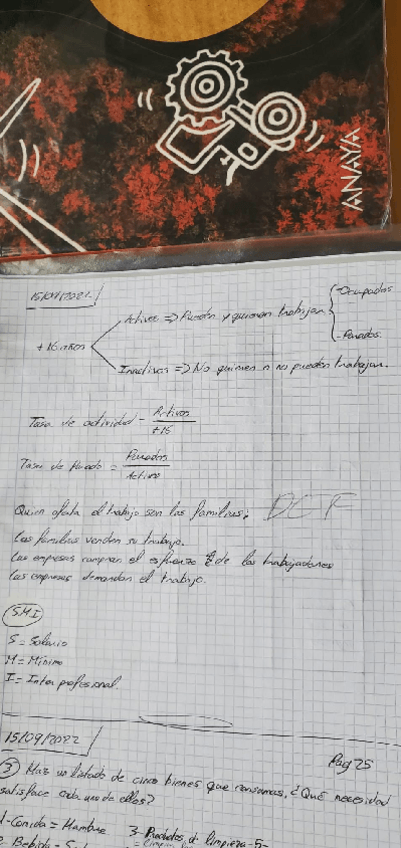 ANAYA
15/09/2022
Activos => Pueden y quieren trabajar
- Ocupados
- Parados.
+16 años
Inactivos => No quieren o no pueden trabajar.
Tasa de actividad = Activos / +16
Tasa de Parado = Parados / Activo
Quien ofata el trabajo son las familias;
Las familias venden su trabajo.
Las empresas compran el esfuerzo de los trabajadores
Las empresas demandan el trabajo.
SMI
S = Salario
M = Mínimo
I = Inter profesional.
15/09/2022
Pag 25
3 Haz un listado de cinco bienes que consumas, ¿Qué necesidad
satisface cada uno de ellos?
1-Comida = Hambre 3-Productos de limpieza -5-